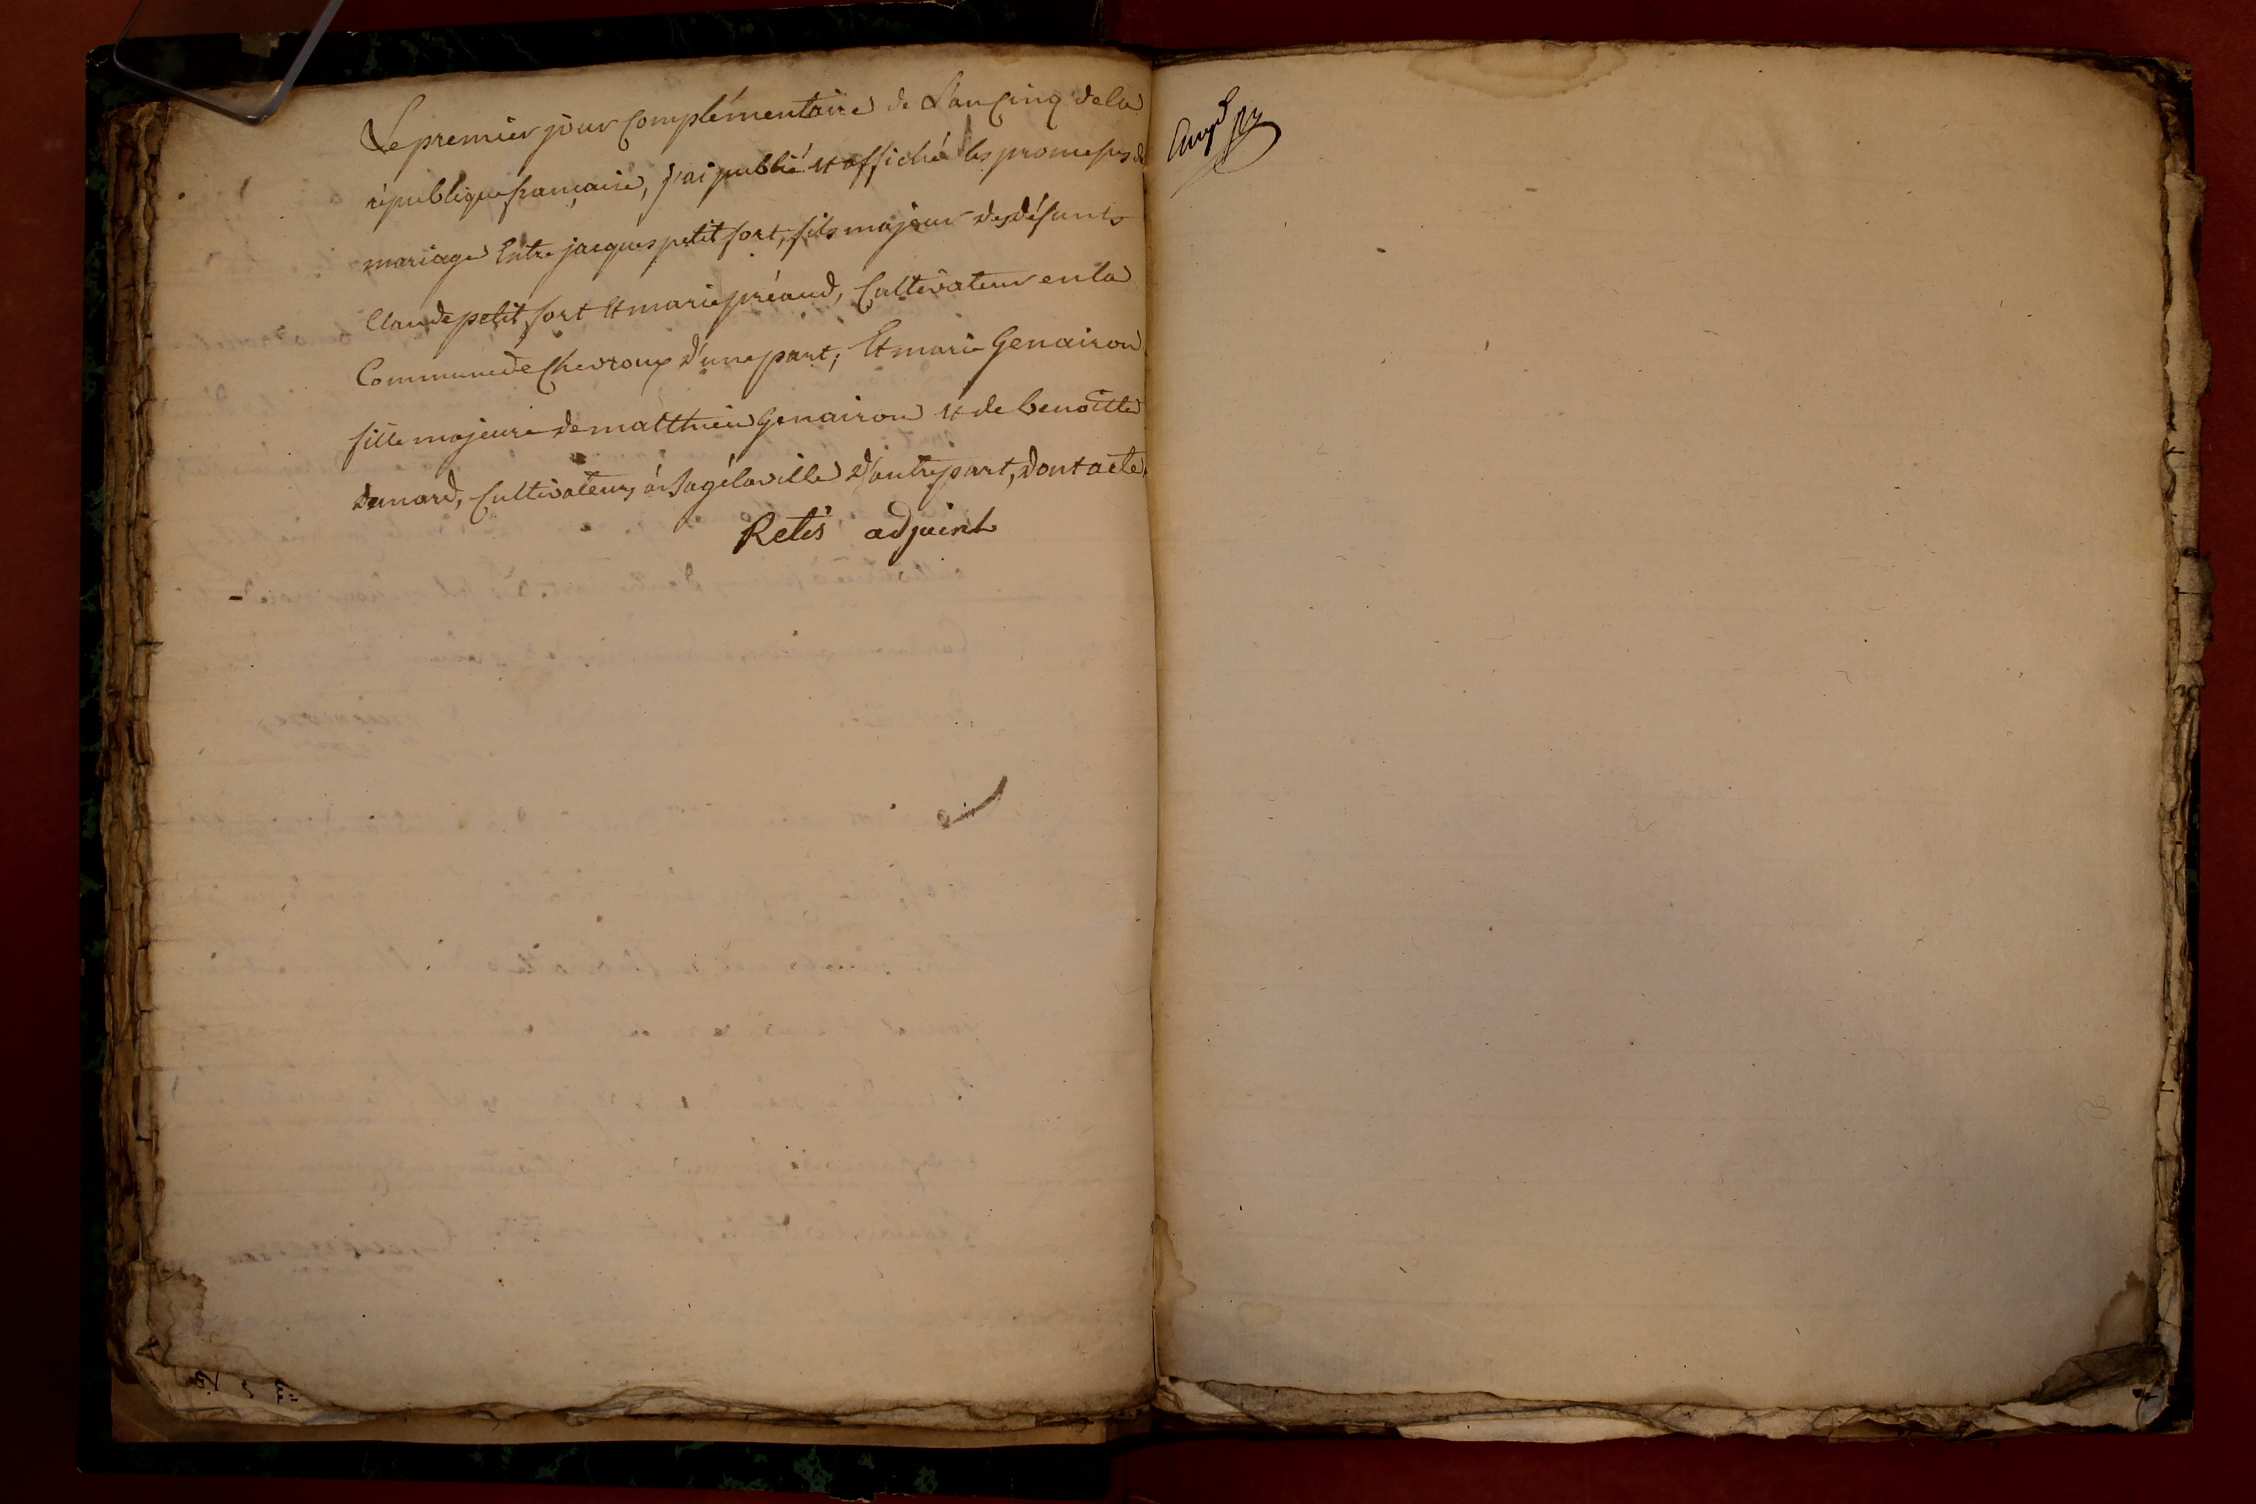 Le premier jour Complémentaire de L'an Cinq de la
république française, j'ai publié et affiché les promesses de
mariage Entre jacques petit fort, fils majeur des défunts
Claude petit fort Et marie préaud, Cultivateur en la
Commune de Chevroux d'une part; Et marie Genairon
fille majeure de matthieu Genairon et de benoitte
Danard, Cultivateurs à d'autre part, dont acte.
Retis adjoint